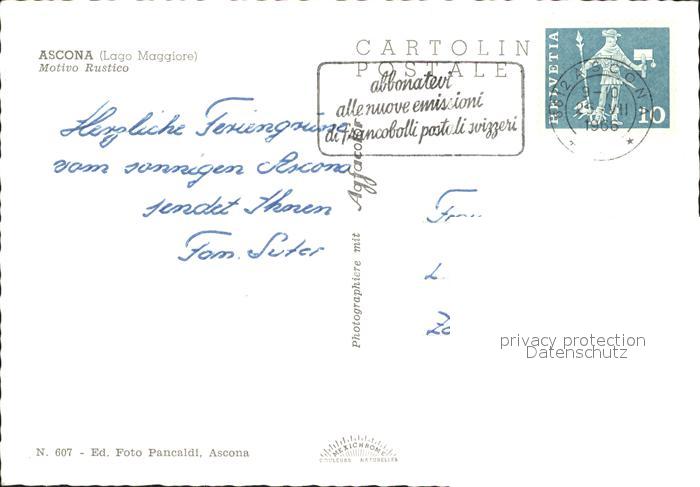 ASCONA (Lago Maggiore)
Motivo Rustico
CARTOLIN
POSTALE
abbonatevi
alle nuove emissioni
di francobolli postali svizzeri
HELVETIA
10
ASCONA
9-10
VII
1966
Herzliche Feriengrüsse
vom sonnigen Ascona
sendet Ihnen
Fam. Suter
Photographiere mit Agfacolor
Frau
L.
privacy protection
Datenschutz
N. 607 - Ed. Foto Pancaldi, Ascona
MEXICHROME
COULEURS NATURELLES